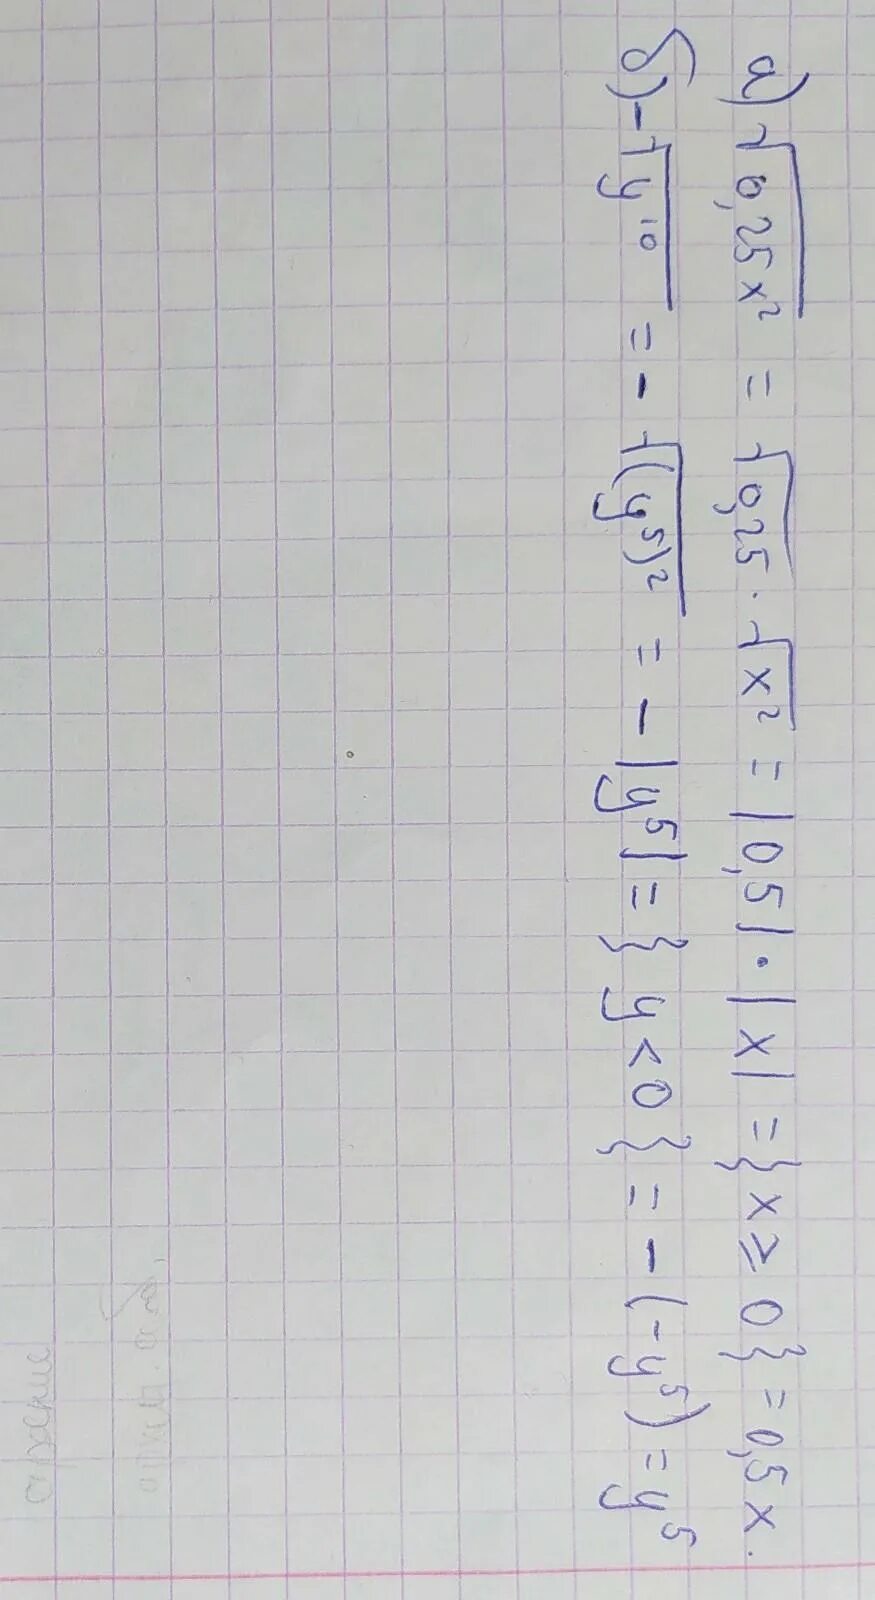 а) √0,25x² = √0,25 · √x² = |0,5| · |x| = {x ≥ 0} = 0,5x.
б) -√y¹⁰ = -√(y⁵)² = -|y⁵| = {y < 0} = -(-y⁵) = y⁵